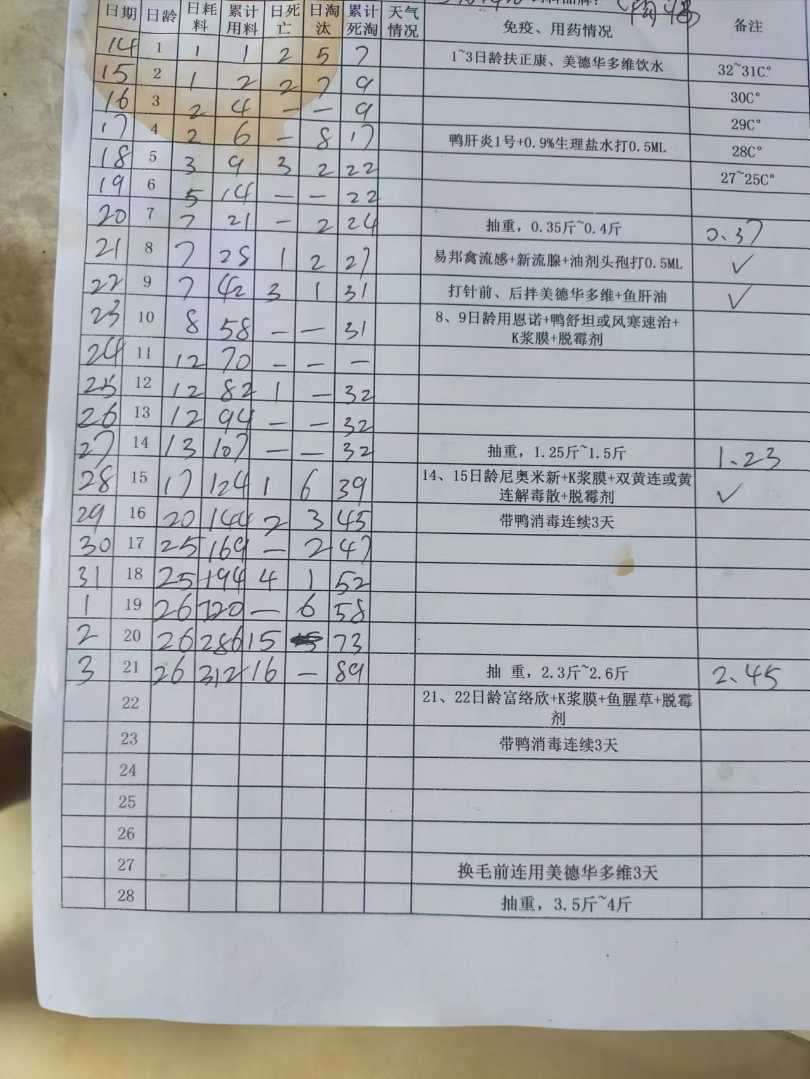 日期 日龄 日耗料 累计用料 日死亡 日淘汰 累计死淘 天气情况 免疫、用药情况 备注
14 1 1 1 2 5 7 1~3日龄扶正康、美德华多维饮水 32~31C°
15 2 1 2 2 7 9 30C°
16 3 2 4 — — 9 29C°
17 4 2 6 — 8 17 鸭肝炎1号+0.9%生理盐水打0.5ML 28C°
18 5 3 9 3 2 22 27~25C°
19 6 5 14 — — 22
20 7 7 21 — 2 24 抽重，0.35斤~0.4斤 0.37
21 8 7 28 1 2 27 易邦禽流感+新流腺+油剂头孢打0.5ML ✓
22 9 7 42 3 1 31 打针前、后拌美德华多维+鱼肝油 ✓
23 10 8 58 — — 31 8、9日龄用恩诺+鸭舒坦或风寒速治+
K浆膜+脱霉剂
24 11 12 70 — — —
25 12 12 82 1 — 32
26 13 12 94 — — 32
27 14 13 107 — — 32 抽重，1.25斤~1.5斤 1.23
28 15 17 124 1 6 39 14、15日龄尼奥米新+K浆膜+双黄连或黄
连解毒散+脱霉剂 ✓
29 16 20 144 2 3 45 带鸭消毒连续3天
30 17 25 169 — 2 47
31 18 25 194 4 1 52
1 19 26 220 — 6 58
2 20 26 286 15 73
3 21 26 312 16 — 89 抽 重，2.3斤~2.6斤 2.45
22 21、22日龄富络欣+K浆膜+鱼腥草+脱霉
剂
23 带鸭消毒连续3天
24
25
26
27 换毛前连用美德华多维3天
28 抽重，3.5斤~4斤